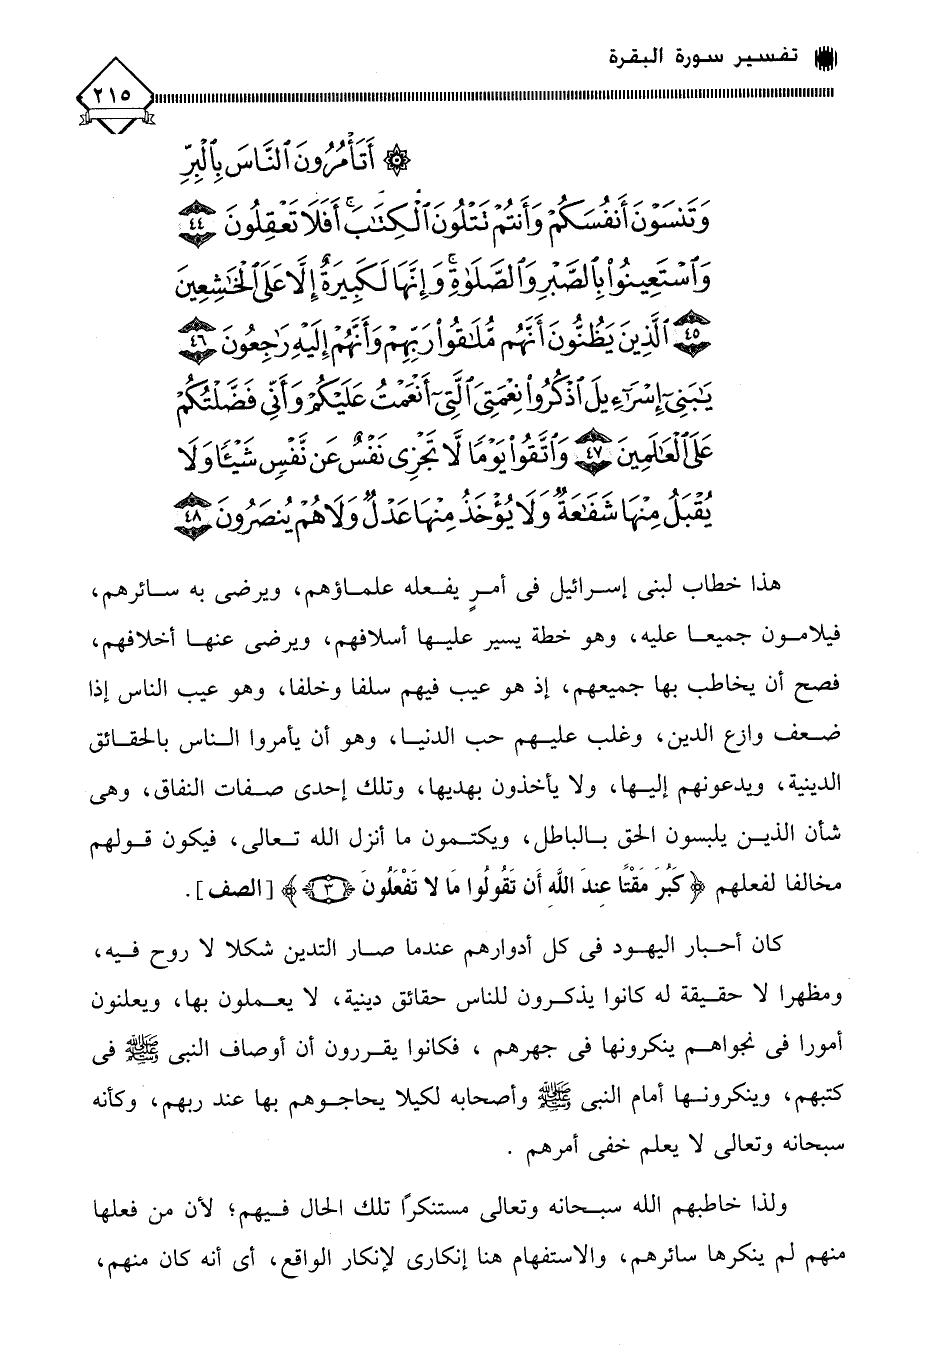 تفسير سورة البقرة
٢١٥
۞ أَتَأْمُرُونَ ٱلنَّاسَ بِٱلْبِرِّ
وَتَنسَوْنَ أَنفُسَكُمْ وَأَنتُمْ تَتْلُونَ ٱلْكِتَٰبَ ۚ أَفَلَا تَعْقِلُونَ ٤٤
وَٱسْتَعِينُوا۟ بِٱلصَّبْرِ وَٱلصَّلَوٰةِ ۚ وَإِنَّهَا لَكَبِيرَةٌ إِلَّا عَلَى ٱلْخَٰشِعِينَ
٤٥ ٱلَّذِينَ يَظُنُّونَ أَنَّهُم مُّلَٰقُوا۟ رَبِّهِمْ وَأَنَّهُمْ إِلَيْهِ رَٰجِعُونَ ٤٦
يَٰبَنِىٓ إِسْرَٰٓءِيلَ ٱذْكُرُوا۟ نِعْمَتِىَ ٱلَّتِىٓ أَنْعَمْتُ عَلَيْكُمْ وَأَنِّى فَضَّلْتُكُمْ
عَلَى ٱلْعَٰلَمِينَ ٤٧ وَٱتَّقُوا۟ يَوْمًا لَّا تَجْزِى نَفْسٌ عَن نَّفْسٍ شَيْـًٔا وَلَا
يُقْبَلُ مِنْهَا شَفَٰعَةٌ وَلَا يُؤْخَذُ مِنْهَا عَدْلٌ وَلَا هُمْ يُنصَرُونَ ٤٨
هذا خطاب لبنى إسرائيل فى أمرٍ يفعله علماؤهم، ويرضى به سائرهم،
فيلامون جميعا عليه، وهو خطة يسير عليها أسلافهم، ويرضى عنها أخلافهم،
فصح أن يخاطب بها جميعهم، إذ هو عيب فيهم سلفا وخلفا، وهو عيب الناس إذا
ضعف وازع الدين، وغلب عليهم حب الدنيا، وهو أن يأمروا الناس بالحقائق
الدينية، ويدعونهم إليها، ولا يأخذون بهديها، وتلك إحدى صفات النفاق، وهى
شأن الذين يلبسون الحق بالباطل، ويكتمون ما أنزل الله تعالى، فيكون قولهم
مخالفا لفعلهم ﴿ كَبُرَ مَقْتًا عِندَ اللَّهِ أَن تَقُولُوا مَا لا تَفْعَلُونَ ٣ ﴾ [الصف].
كان أحبار اليهود فى كل أدوارهم عندما صار التدين شكلا لا روح فيه،
ومظهرا لا حقيقة له كانوا يذكرون للناس حقائق دينية، لا يعملون بها، ويعلنون
أمورا فى نجواهم ينكرونها فى جهرهم ، فكانوا يقررون أن أوصاف النبى ﷺ فى
كتبهم، وينكرونها أمام النبى ﷺ وأصحابه لكيلا يحاجوهم بها عند ربهم، وكأنه
سبحانه وتعالى لا يعلم خفى أمرهم .
ولذا خاطبهم الله سبحانه وتعالى مستنكرًا تلك الحال فيهم؛ لأن من فعلها
منهم لم ينكرها سائرهم، والاستفهام هنا إنكارى لإنكار الواقع، أى أنه كان منهم،